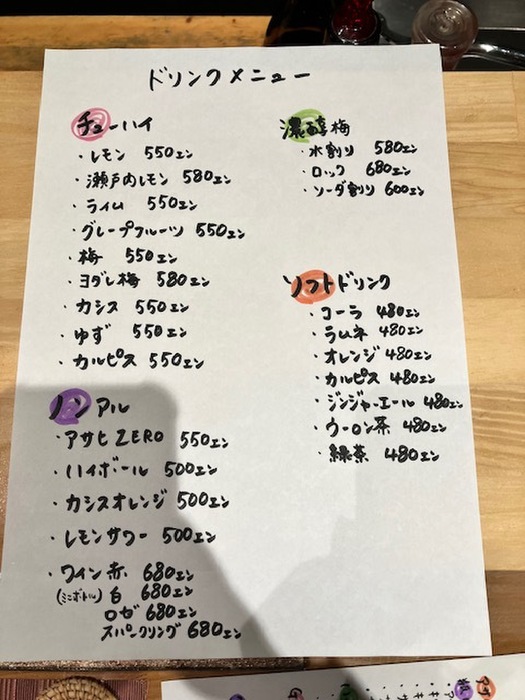 ドリンクメニュー
チューハイ
・レモン 550エン
・瀬戸内レモン 580エン
・ライム 550エン
・グレープフルーツ 550エン
・梅 550エン
・ヨダレ梅 580エン
・カシス 550エン
・ゆず 550エン
・カルピス 550エン
ノンアル
・アサヒZERO 550エン
・ハイボール 500エン
・カシスオレンジ 500エン
・レモンサワー 500エン
・ワイン赤 680エン
(ミニボトル) 白 680エン
ロゼ 680エン
スパークリング 680エン
濃醇梅
・水割り 580エン
・ロック 680エン
・ソーダ割り 600エン
ソフトドリンク
・コーラ 480エン
・ラムネ 480エン
・オレンジ 480エン
・カルピス 480エン
・ジンジャーエール 480エン
・ウーロン茶 480エン
・緑茶 480エン